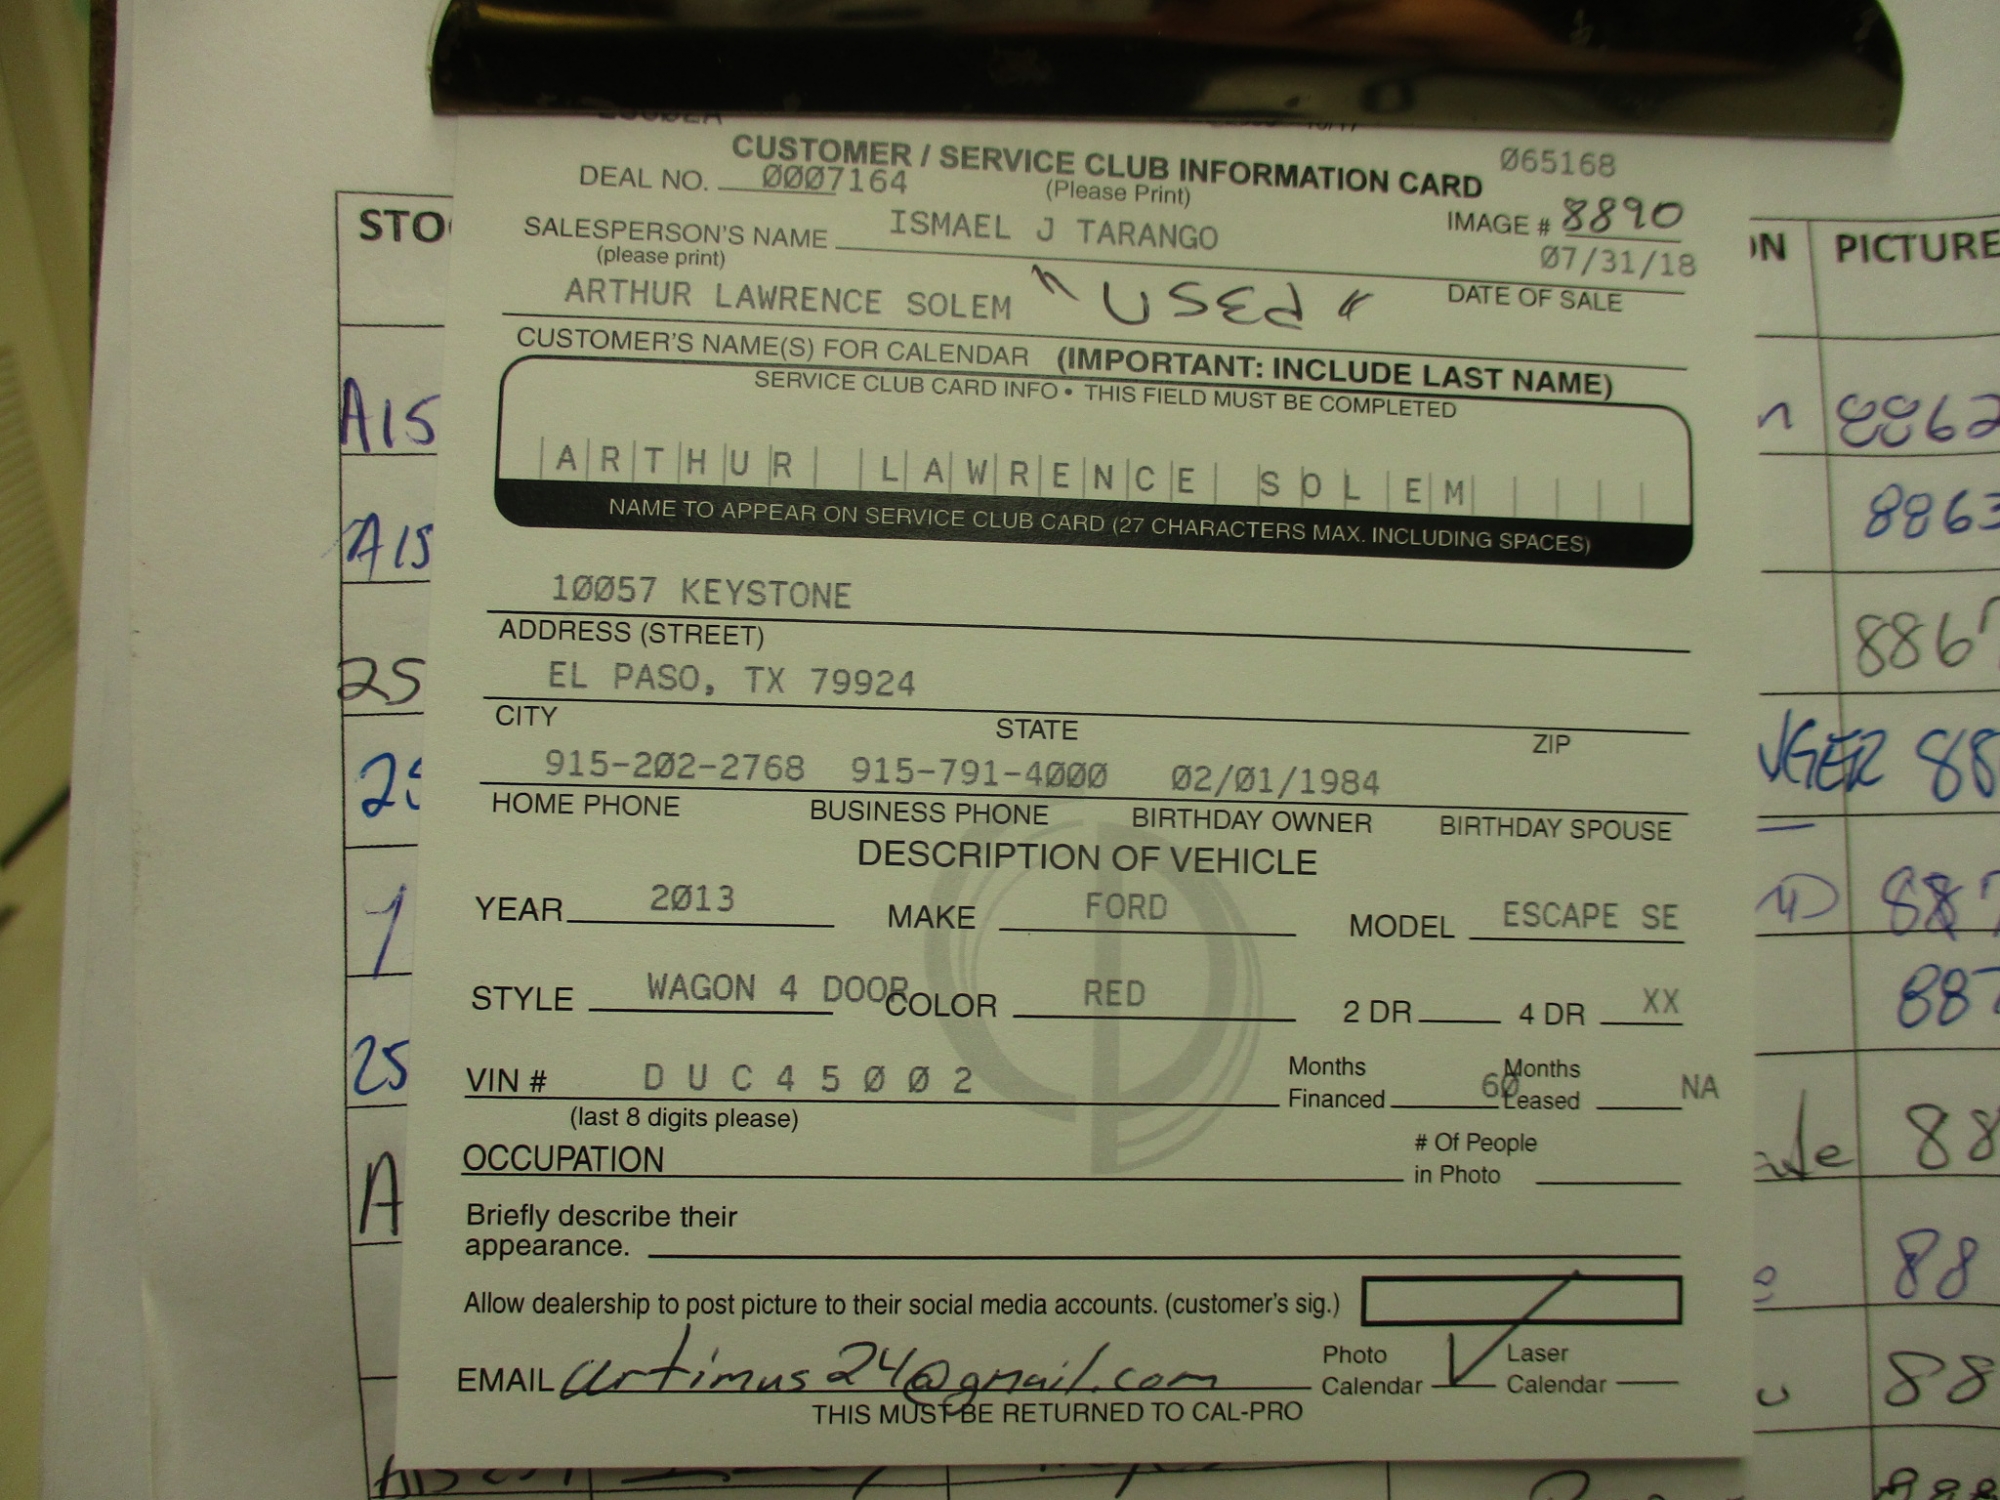 CUSTOMER / SERVICE CLUB INFORMATION CARD Ø65168
DEAL NO. ØØØ7164 (Please Print)
IMAGE # 8890
SALESPERSON'S NAME ISMAEL J TARANGO
(please print) Ø7/31/18
ARTHUR LAWRENCE SOLEM "USEd" DATE OF SALE
CUSTOMER'S NAME(S) FOR CALENDAR (IMPORTANT: INCLUDE LAST NAME)
SERVICE CLUB CARD INFO • THIS FIELD MUST BE COMPLETED
ARTHUR LAWRENCE SOLEM
NAME TO APPEAR ON SERVICE CLUB CARD (27 CHARACTERS MAX. INCLUDING SPACES)
1ØØ57 KEYSTONE
ADDRESS (STREET)
EL PASO, TX 79924
CITY STATE ZIP
915-2Ø2-2768 915-791-4ØØØ Ø2/Ø1/1984
HOME PHONE BUSINESS PHONE BIRTHDAY OWNER BIRTHDAY SPOUSE
DESCRIPTION OF VEHICLE
YEAR 2Ø13 MAKE FORD MODEL ESCAPE SE
STYLE WAGON 4 DOOR COLOR RED 2 DR 4 DR XX
VIN # D U C 4 5 Ø Ø 2 Months Financed 6Ø Months Leased NA
(last 8 digits please)
OCCUPATION # Of People in Photo
Briefly describe their
appearance.
Allow dealership to post picture to their social media accounts. (customer's sig.)
EMAIL artimus24@gmail.com Photo Calendar ✓ Laser Calendar
THIS MUST BE RETURNED TO CAL-PRO
STO
PICTURE
A15
8862
A15
8863
25
886
VGER 88
25
A
88
88
88